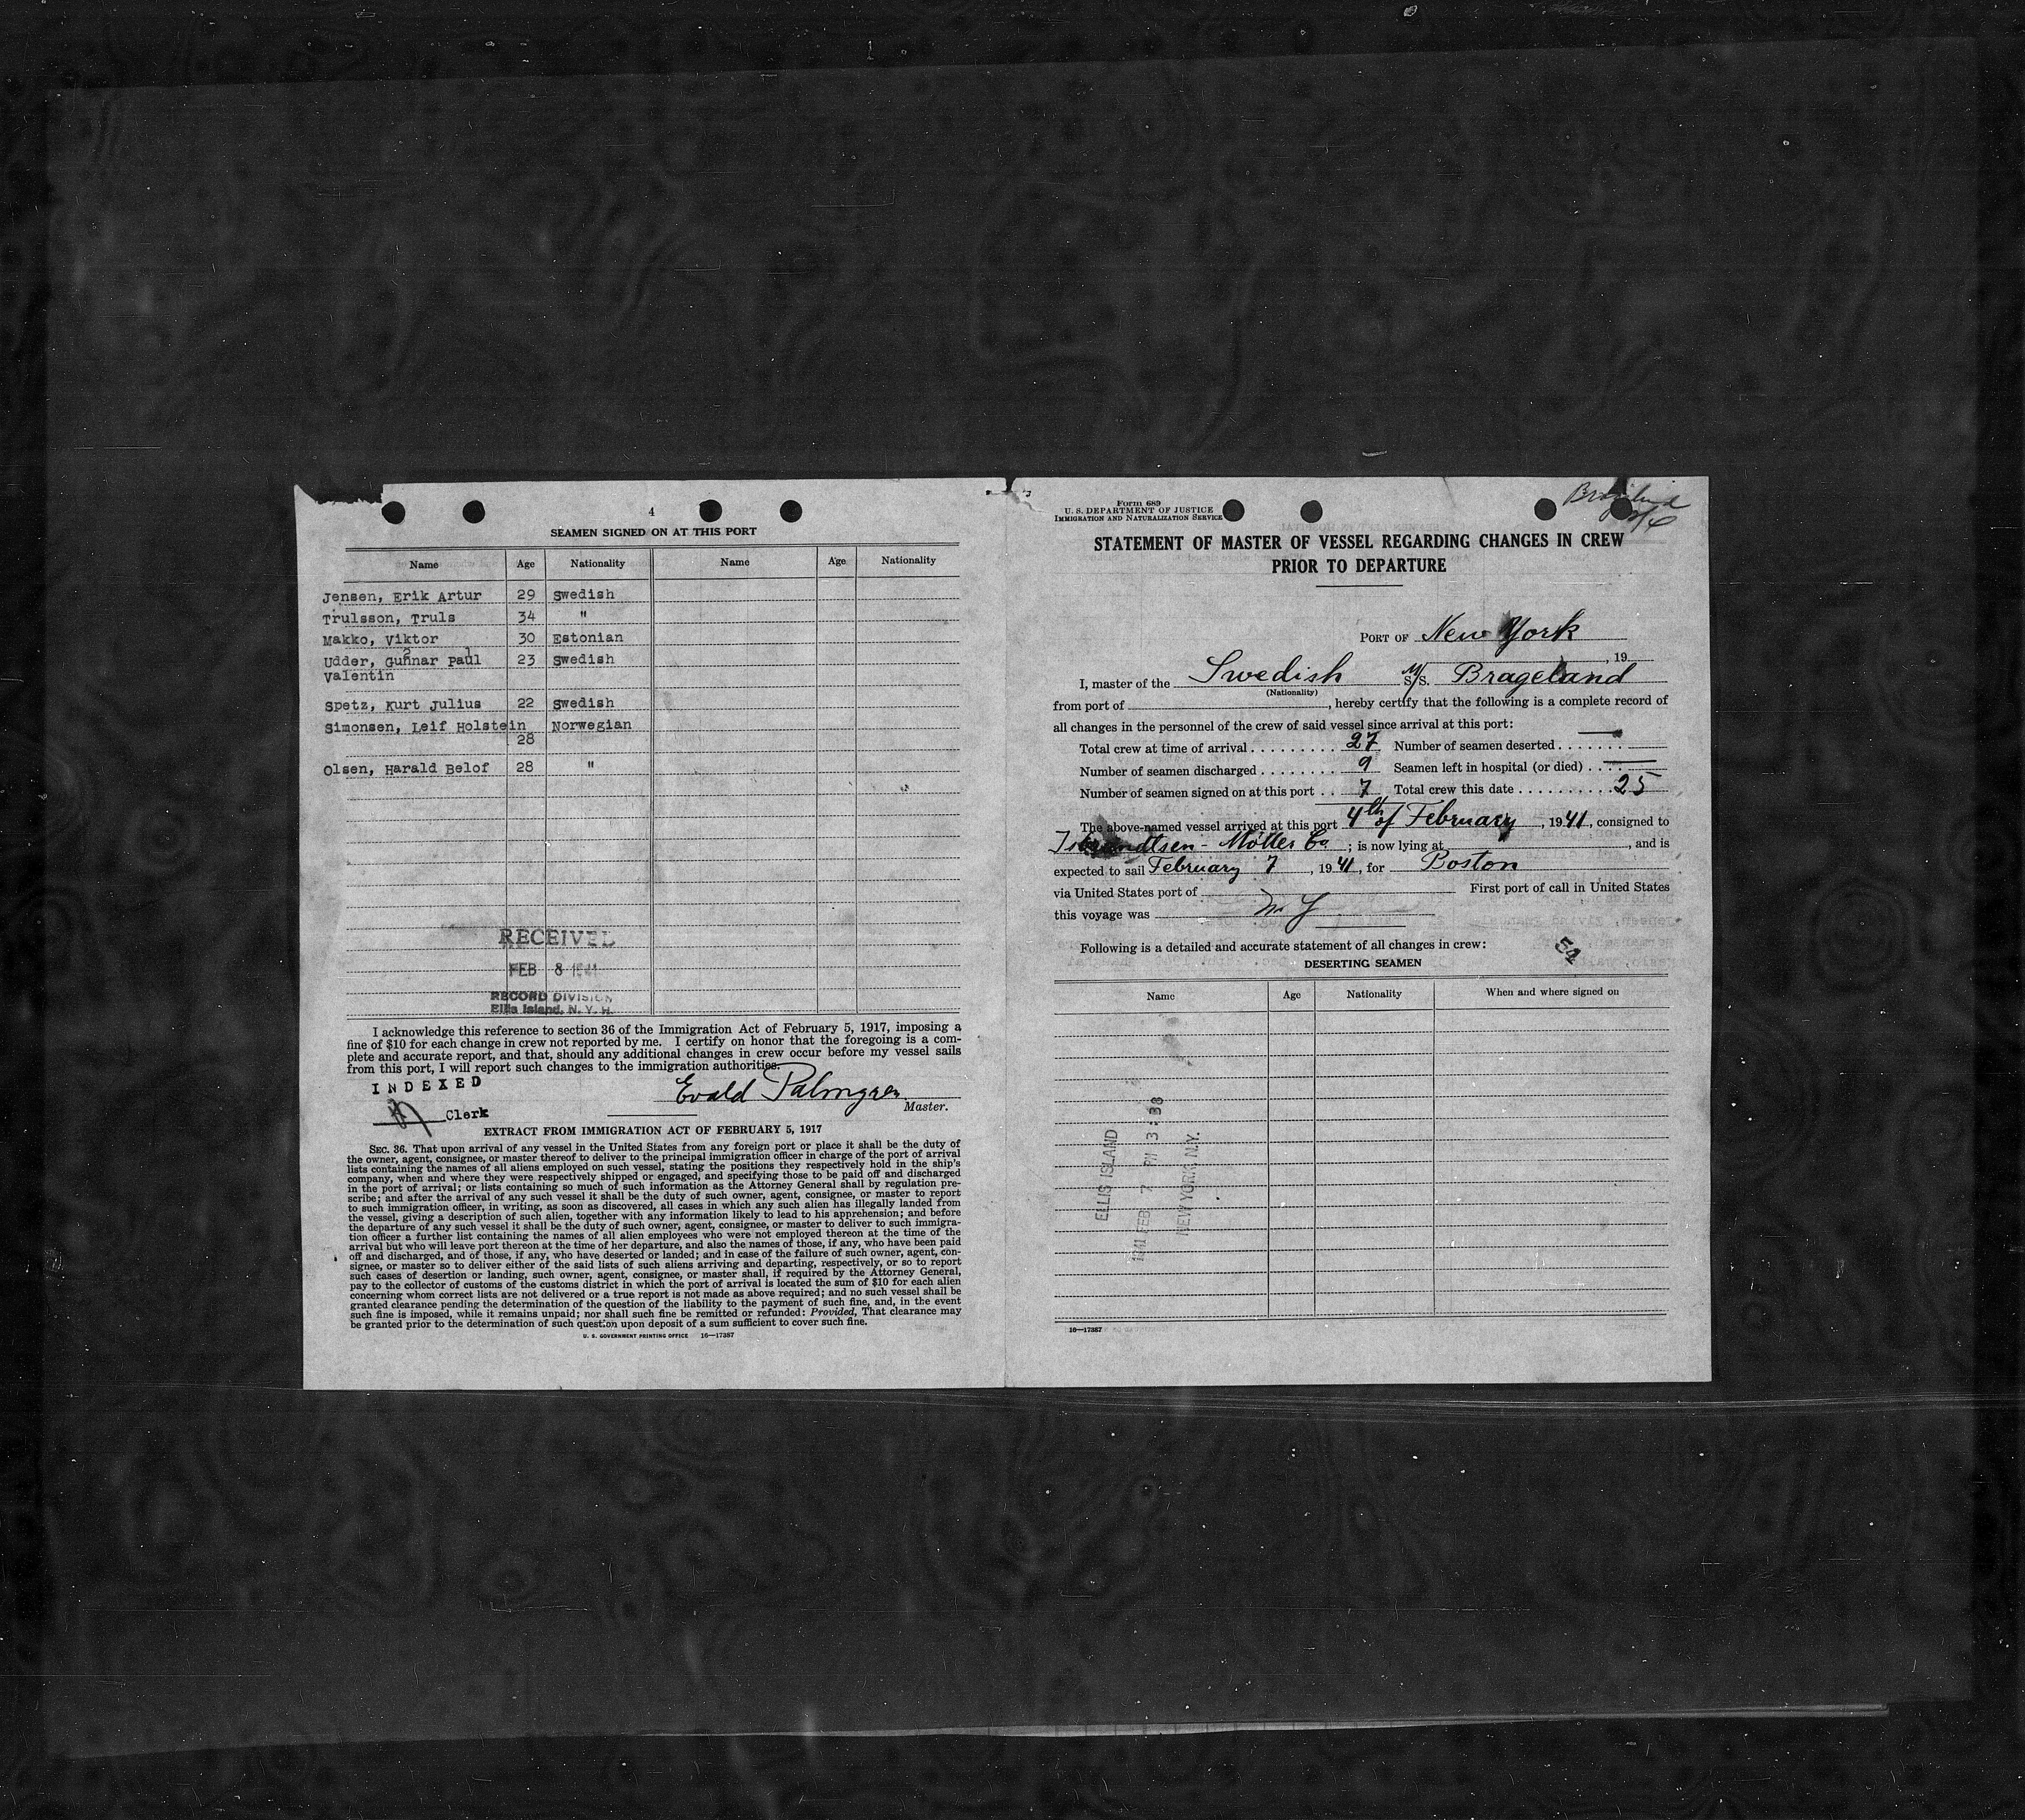 4
SEAMEN SIGNED ON AT THIS PORT
Name Age Nationality Name Age Nationality
Jensen, Erik Artur 29 Swedish
Trulsson, Truls 34 "
Makko, Viktor 30 Estonian
Udder, Gunnar Paul 23 Swedish
Valentin
Spetz, Kurt Julius 22 Swedish
Simonsen, Leif Holstein Norwegian
28
Olsen, Harald Belof 28 "
RECEIVED
FEB 8 1941
RECORD DIVISION
Ellis Island, N. Y. H.
I acknowledge this reference to section 36 of the Immigration Act of February 5, 1917, imposing a
fine of $10 for each change in crew not reported by me. I certify on honor that the foregoing is a com-
plete and accurate report, and that, should any additional changes in crew occur before my vessel sails
from this port, I will report such changes to the immigration authorities.
INDEXED
Evald Palmgren
Clerk
Master.
EXTRACT FROM IMMIGRATION ACT OF FEBRUARY 5, 1917
SEC. 36. That upon arrival of any vessel in the United States from any foreign port or place it shall be the duty of
the owner, agent, consignee, or master thereof to deliver to the principal immigration officer in charge of the port of arrival
lists containing the names of all aliens employed on such vessel, stating the positions they respectively hold in the ship's
company, when and where they were respectively shipped or engaged, and specifying those to be paid off and discharged
in the port of arrival; or lists containing so much of such information as the Attorney General shall by regulation pre-
scribe; and after the arrival of any such vessel it shall be the duty of such owner, agent, consignee, or master to report
to such immigration officer, in writing, as soon as discovered, all cases in which any such alien has illegally landed from
the vessel, giving a description of such alien, together with any information likely to lead to his apprehension; and before
the departure of any such vessel it shall be the duty of such owner, agent, consignee, or master to deliver to such immigra-
tion officer a further list containing the names of all alien employees who were not employed thereon at the time of the
arrival but who will leave port thereon at the time of her departure, and also the names of those, if any, who have been paid
off and discharged, and of those, if any, who have deserted or landed; and in case of the failure of such owner, agent, con-
signee, or master so to deliver either of the said lists of such aliens arriving and departing, respectively, or so to report
such cases of desertion or landing, such owner, agent, consignee, or master shall, if required by the Attorney General,
pay to the collector of customs of the customs district in which the port of arrival is located the sum of $10 for each alien
concerning whom correct lists are not delivered or a true report is not made as above required; and no such vessel shall be
granted clearance pending the determination of the question of the liability to the payment of such fine, and, in the event
such fine is imposed, while it remains unpaid; nor shall such fine be remitted or refunded: Provided, That clearance may
be granted prior to the determination of such question upon deposit of a sum sufficient to cover such fine.
U. S. GOVERNMENT PRINTING OFFICE 16—17387
Form 689
U. S. DEPARTMENT OF JUSTICE
IMMIGRATION AND NATURALIZATION SERVICE
STATEMENT OF MASTER OF VESSEL REGARDING CHANGES IN CREW
PRIOR TO DEPARTURE
PORT OF New York
, 19
I, master of the Swedish M/S. Brageland
(Nationality)
from port of , hereby certify that the following is a complete record of
all changes in the personnel of the crew of said vessel since arrival at this port:
Total crew at time of arrival 27 Number of seamen deserted —
Number of seamen discharged 9 Seamen left in hospital (or died) —
Number of seamen signed on at this port 7 Total crew this date 25
The above-named vessel arrived at this port 4th of February, 1941, consigned to
Isbrandtsen - Möller Co ; is now lying at , and is
expected to sail February 7, 1941, for Boston
via United States port of First port of call in United States
this voyage was N Y
Following is a detailed and accurate statement of all changes in crew:
54
DESERTING SEAMEN
Name Age Nationality When and where signed on
ELLIS ISLAND
1941 FEB 7 PM 3:38
NEW YORK, N.Y.
16—17387